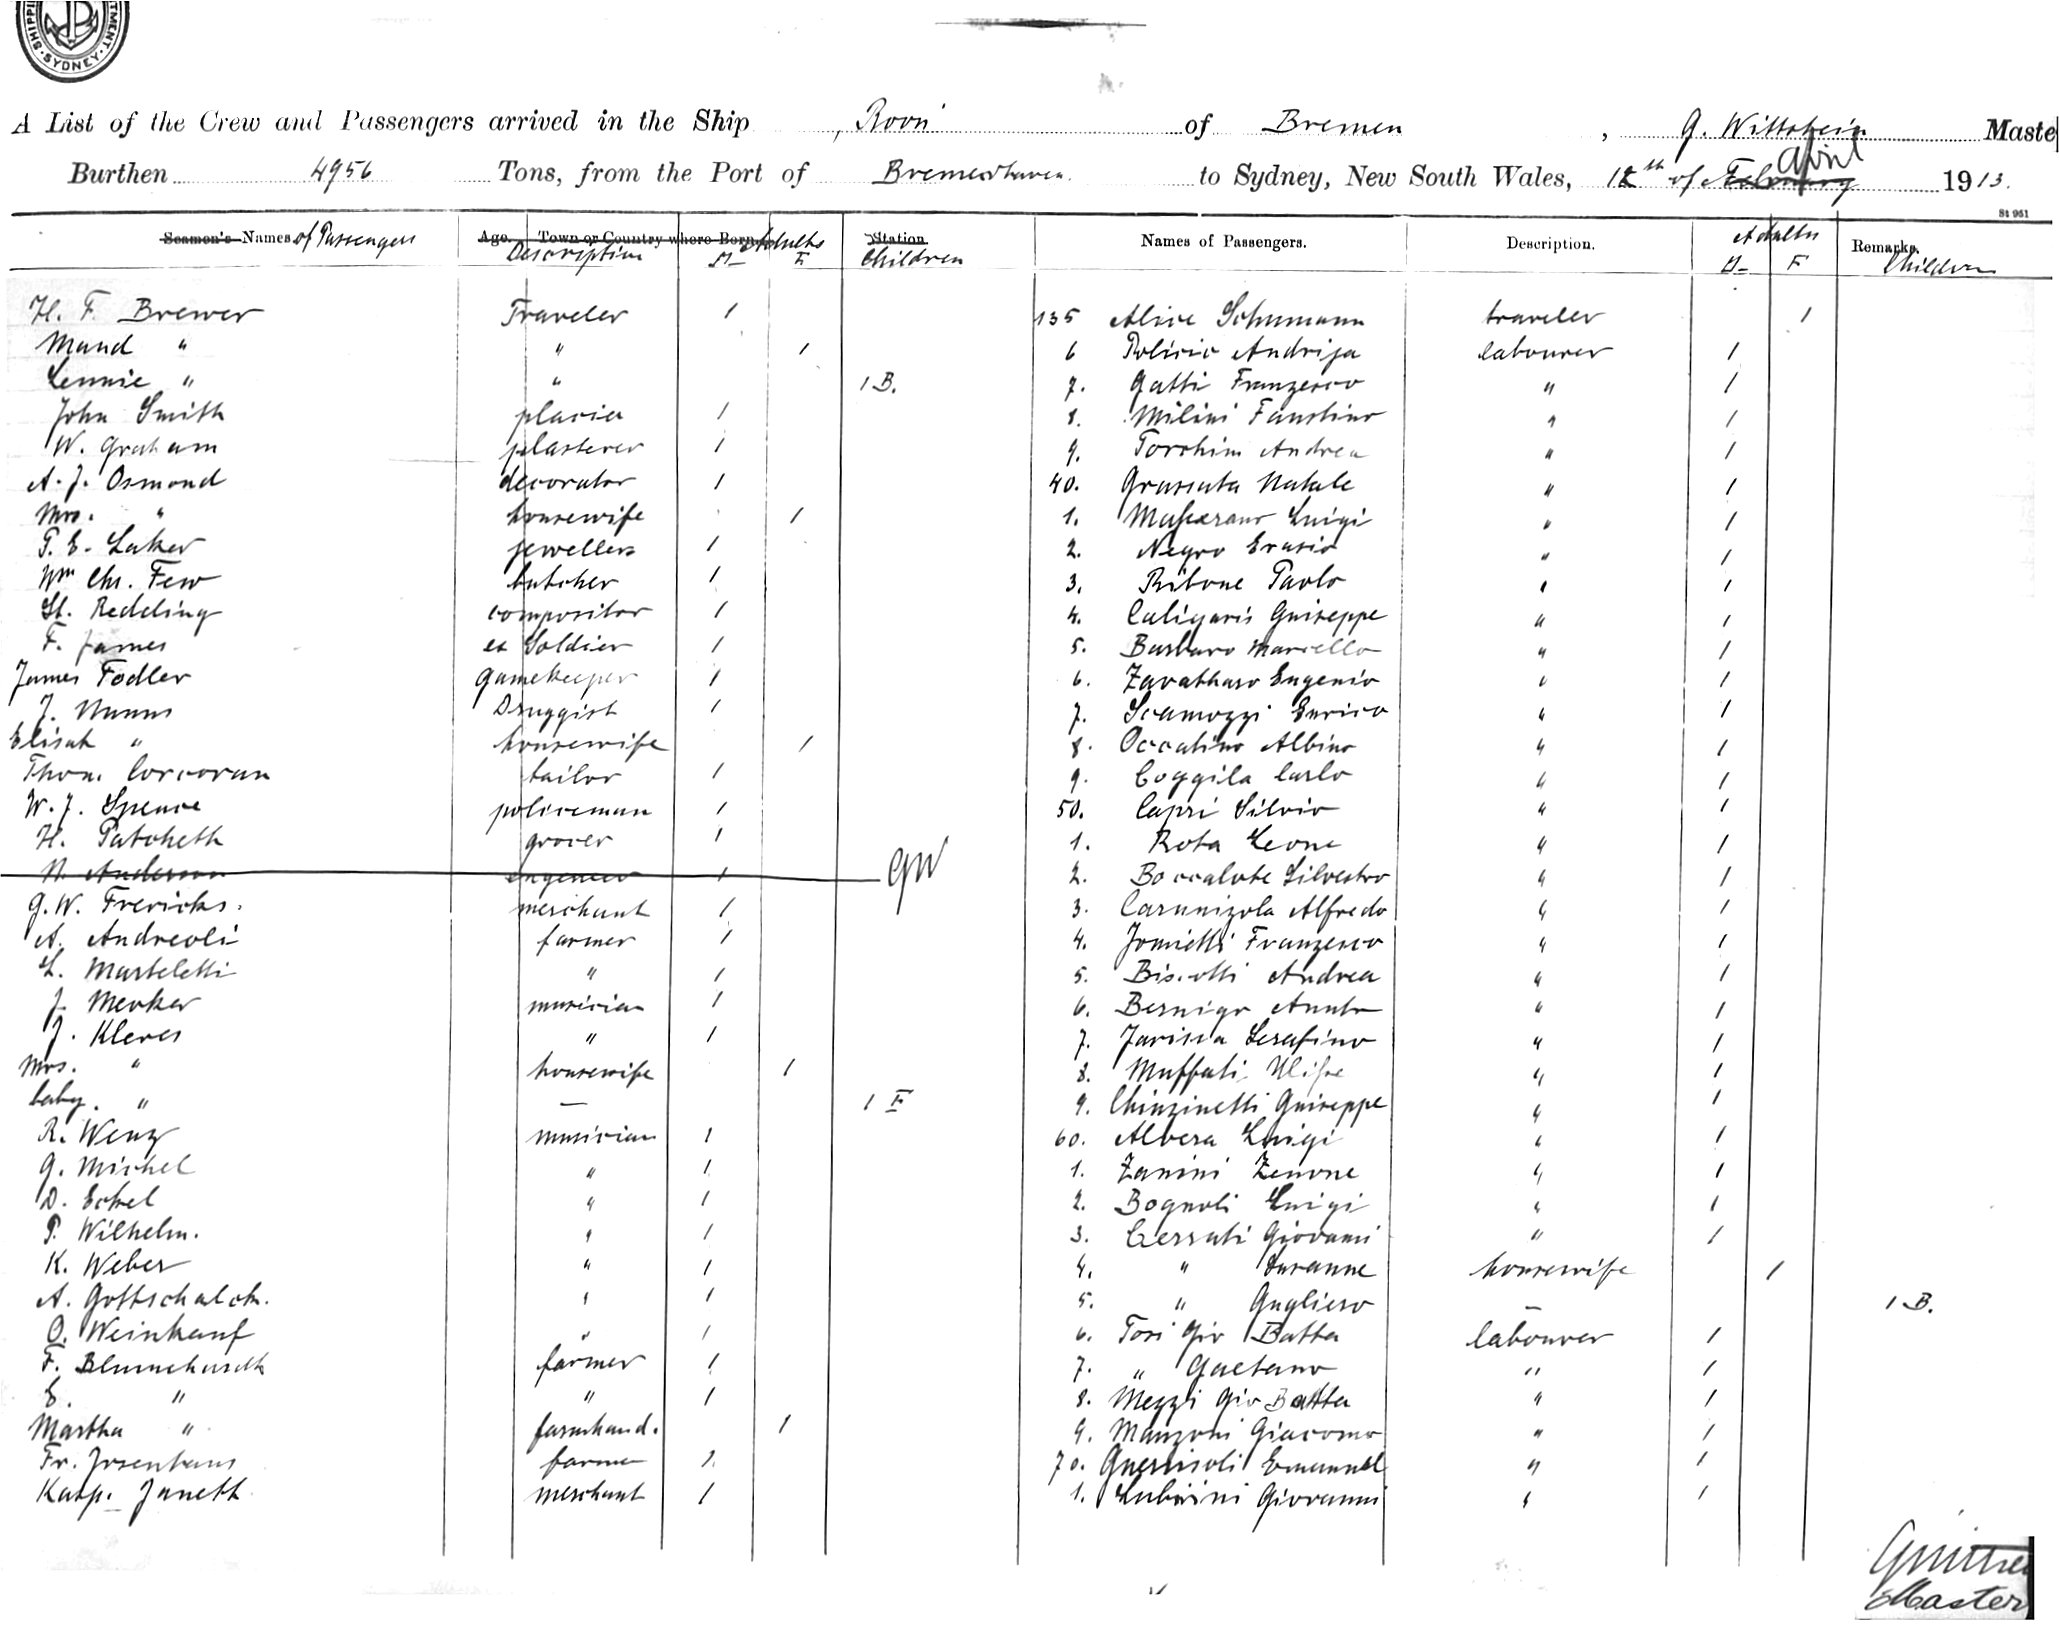 SHIPPI TMENT. SYDNEY.
A List of the Crew and Passengers arrived in the Ship , Roon of Bremen , G. Wittstein Maste
Burthen 4956 Tons, from the Port of Bremerhaven. to Sydney, New South Wales, 12th of February April 1913.
St 951
Seamen's Names of Passengers Age. Town or Country where Born. Description Adults M F Station Children
Names of Passengers. Description. Adults M F Remarks. Children
H. F. Brewer Traveler 1
Maud " " 1
Lennie " " 1 B.
John Smith 1
W. Graham plasterer 1
A. J. Osmond decorator 1
Mrs. " housewife 1
P. E. Laker jewellers 1
Wm Chr. Few butcher 1
St. Redding compositor 1
F. James ex Soldier 1
James Fodler gamekeeper 1
J. Nunns Druggist 1
Elisah " housewife 1
Thom. Corcoran tailor 1
W. J. Spence policeman 1
H. Patcheth grocer 1
N. Anderson engeneer 1 GW
G. W. Frericks. merchant 1
A. Andreoli farmer 1
L. Marteletti " 1
J. Merker musician 1
J. Kleves " 1
Mrs. " housewife 1
baby. " — 1 F
R. Wenz musician 1
G. Michel " 1
D. Eckel " 1
P. Wilhelm. " 1
K. Weber " 1
A. Gottschalck. " 1
O. Weinkauf " 1
F. Blumehardt farmer 1
E. " " 1
Martha " farmhand. 1
Fr. Josenhans farmer 1
Kasp. Janett merchant 1
135 Alice Schumann traveler 1
6 Policic Andrija labourer 1
7. Gatti Franzesco " 1
8. Milini Faustino " 1
9. Torchini Andrea " 1
40. Grassata Natale " 1
1. Luigi " 1
2. Negro Erasio " 1
3. Ribone Paolo " 1
4. Caligaris Guiseppe " 1
5. Barbaro Marcello " 1
6. Zavattaro Eugenio " 1
7. Scamozzi Enrico " 1
8. Occatino Albino " 1
9. Coggila Carlo " 1
50. Capri Silvio " 1
1. Rota Leone " 1
2. Boccalote Silvestro " 1
3. Carunizola Alfredo " 1
4. Jomietti Franzesco " 1
5. Biscotti Andrea " 1
6. Bernigo " 1
7. Jarisca Serafino " 1
8. Muffati Ulisse " 1
9. Chinzinetti Guiseppe " 1
60. Albera Luigi " 1
1. Zanini Zenone " 1
2. Bognoli Luigi " 1
3. Cerruti Giovanni " 1
4. " Susanne housewife 1
5. " Gugliero — 1 B.
6. Tosi Gio Batta labourer 1
7. " Gaetano " 1
8. Mezzli Gio Batta " 1
9. Manzoni Giacomo " 1
70. Guerrisoli Emanuel " 1
1. Lubrini Giovanni " 1
Master